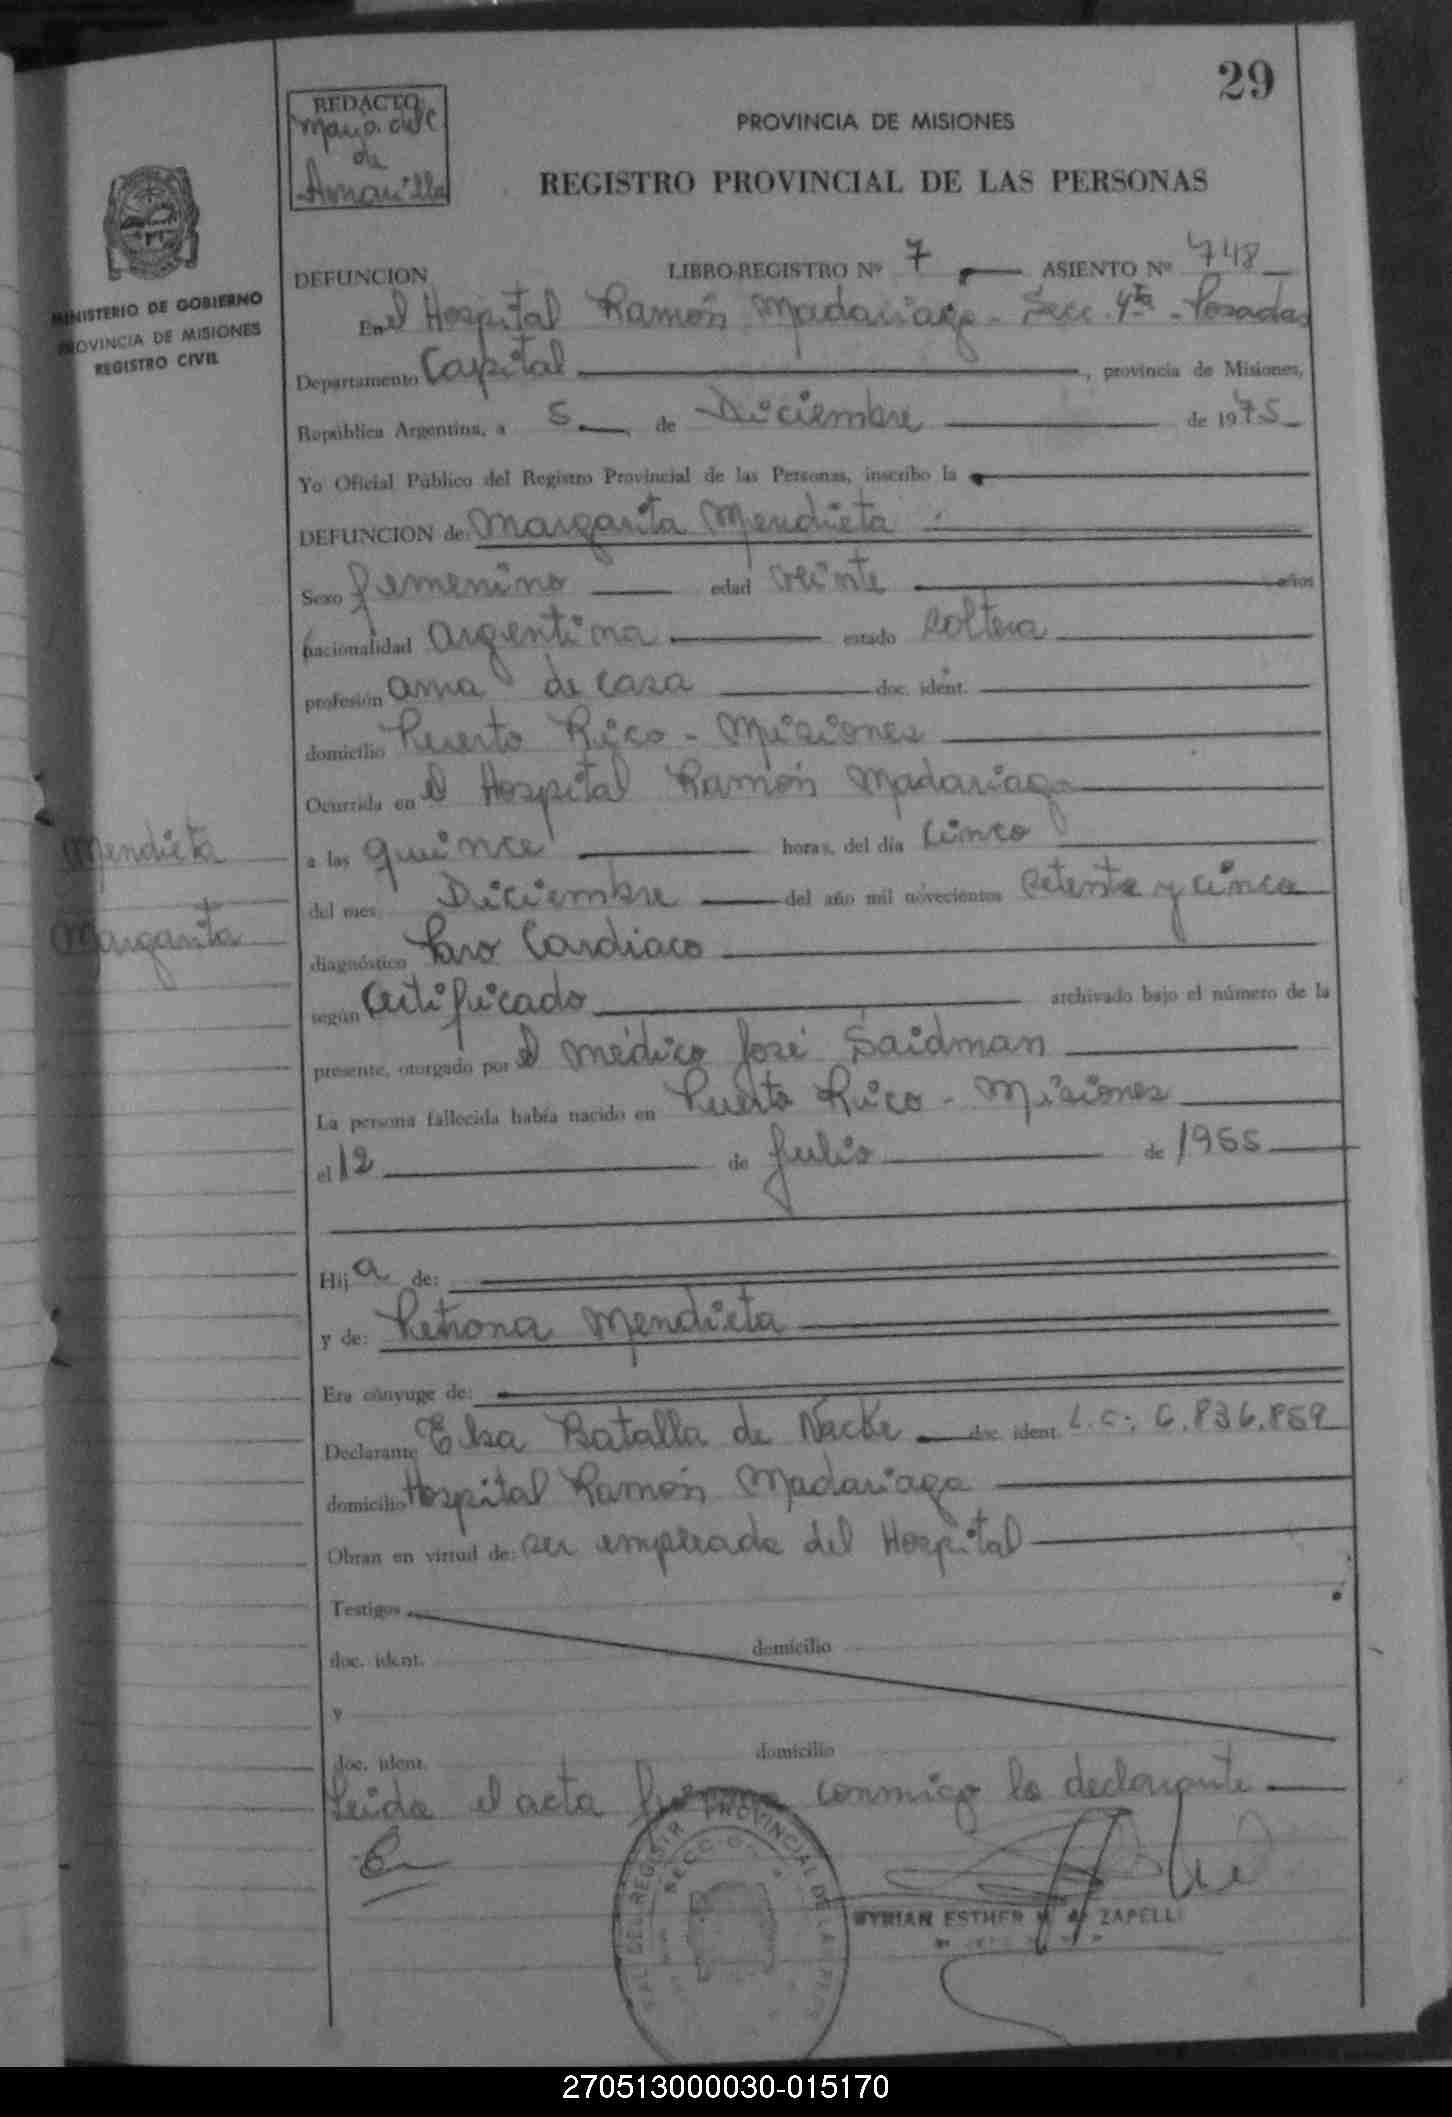 29
REDACTO
de
Amarilla
PROVINCIA DE MISIONES
REGISTRO PROVINCIAL DE LAS PERSONAS
MINISTERIO DE GOBIERNO
PROVINCIA DE MISIONES
REGISTRO CIVIL
DEFUNCION LIBRO-REGISTRO Nº 7 ASIENTO Nº 748
En el Hospital Ramón Madariaga - Secc. 4ta - Posadas
Departamento Capital, provincia de Misiones,
República Argentina, a 5 de Diciembre de 1975
Yo Oficial Público del Registro Provincial de las Personas, inscribo la
DEFUNCION de: Margarita Mendieta
Sexo femenino edad veinte años
nacionalidad argentina estado soltera
profesión ama de casa doc. ident.
domicilio Puerto Rico - Misiones
Ocurrida en el Hospital Ramón Madariaga
Mendieta
Margarita
a las quince horas, del día cinco
del mes Diciembre del año mil novecientos setenta y cinco
diagnóstico Paro Cardiaco
según Certificado archivado bajo el número de la
presente, otorgado por el médico José Saidman
La persona fallecida había nacido en Puerto Rico - Misiones
el 12 de Julio de 1955
Hija de:
y de: Petrona Mendieta
Era cónyuge de:
Declarante Elsa Batalla de Nacke doc. ident. L.C: 6.836.859
domicilio Hospital Ramón Madariaga
Obran en virtud de: ser empleada del Hospital
Testigos
doc. ident. domicilio
y
doc. ident. domicilio
Leida el acta conmigo la declarante
DEL REGISTR PROVINCIAL DE LAS
SECC
MYRIAN ESTHER ZAPELLI
270513000030-015170